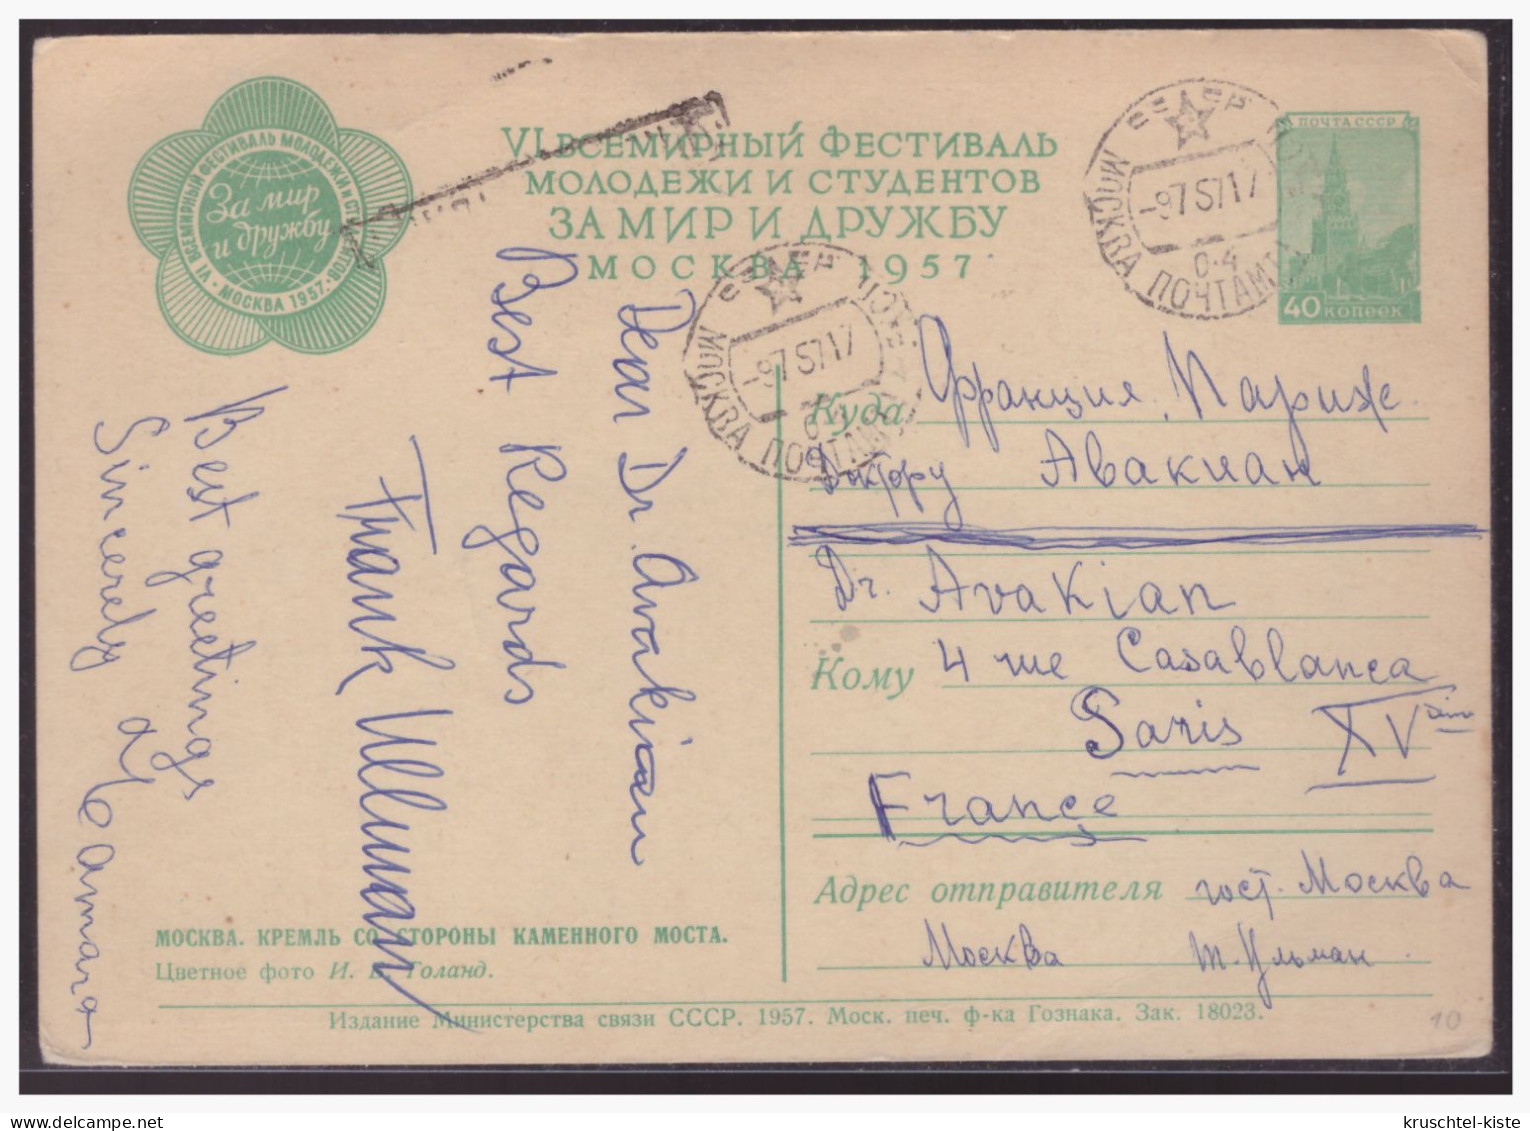 VI ВСЕМИРНЫЙ ФЕСТИВАЛЬ МОЛОДЕЖИ И СТУДЕНТОВ · МОСКВА 1957 ·
За мир
и дружбу
VI ВСЕМИРНЫЙ ФЕСТИВАЛЬ
МОЛОДЕЖИ И СТУДЕНТОВ
ЗА МИР И ДРУЖБУ
МОСКВА 1957
МОСКВА ПОЧТАМТ
-97 57 17
0-4
ПОЧТА СССР
40 КОПЕЕК
МОСКВА ПОЧТАМТ
-97 57 17
Dear Dr. Avakian
Best Regards
Frank Ullman
Best greetings
Sincerely
Куда Франция, Париж.
Доктору Авакиан
Dr. Avakian
Кому 4 rue Casablanca
Paris XV
France
Адрес отправителя гост. Москва
Москва т. Ульман
МОСКВА. КРЕМЛЬ СО СТОРОНЫ КАМЕННОГО МОСТА.
Цветное фото И. Б. Голанд.
Издание Министерства связи СССР. 1957. Моск. печ. ф-ка Гознака. Зак. 18023.
10
kruschtel-kiste